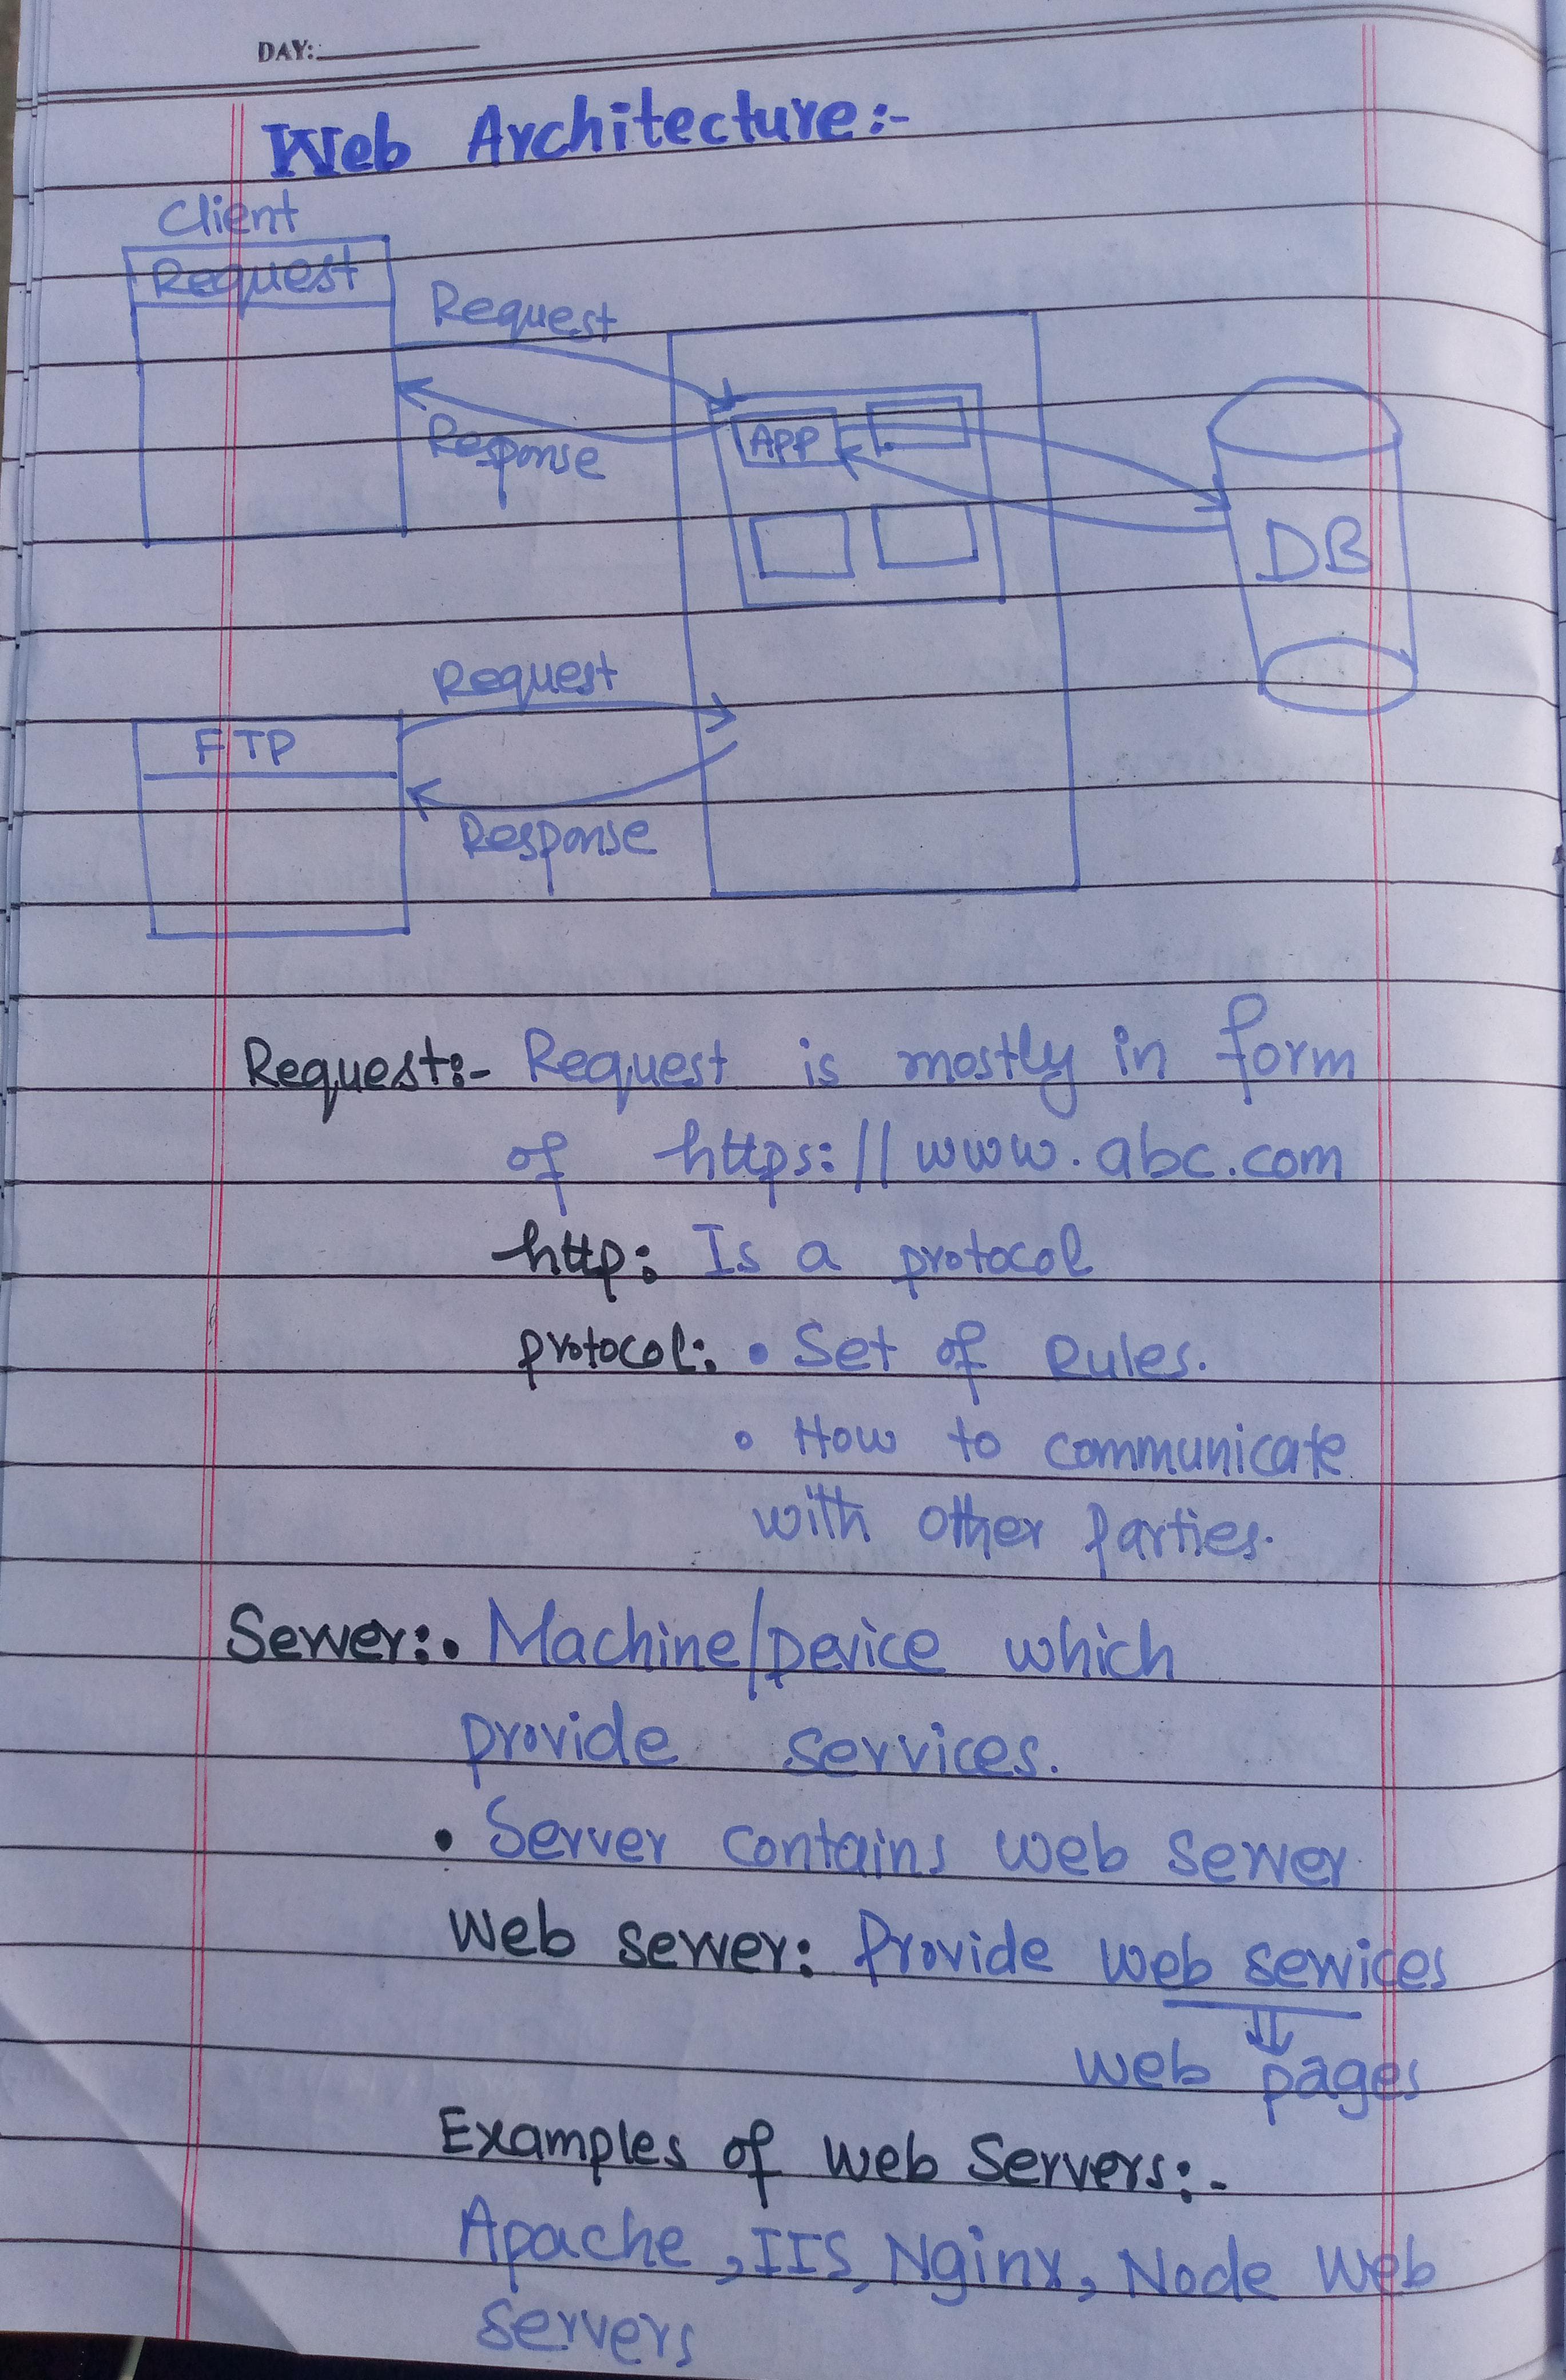 DAY:
Web Architecture:-
Client
Request
Request
Response
APP
DB
Request
FTP
Response
Request:- Request is mostly in form
of https://www.abc.com
http: Is a protocol
protocol: • Set of Rules.
• How to communicate
with other parties.
Server: • Machine/Device which
provide services.
• Server contains web server
Web server: Provide web services
⇓
web pages
Examples of web Servers:-
Apache, IIS, Nginx, Node web
servers